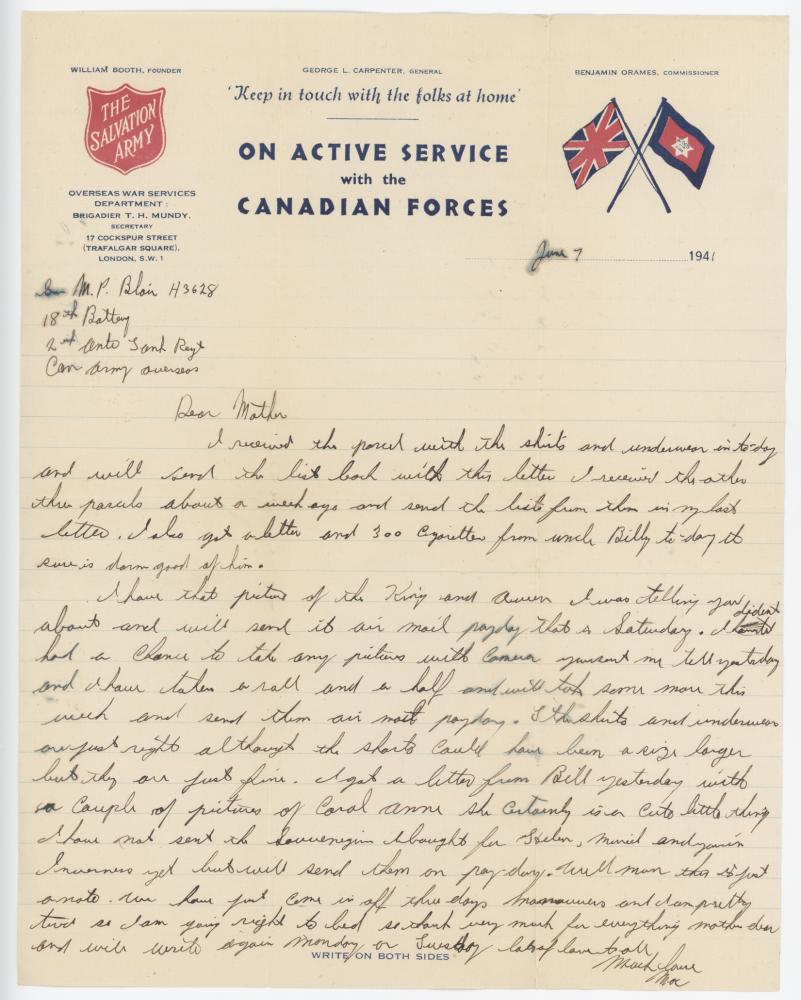 WILLIAM BOOTH, FOUNDER
GEORGE L. CARPENTER, GENERAL
BENJAMIN ORAMES, COMMISSIONER
THE
SALVATION
ARMY
'Keep in touch with the folks at home'
ON ACTIVE SERVICE
with the
CANADIAN FORCES
OVERSEAS WAR SERVICES
DEPARTMENT:
BRIGADIER T. H. MUNDY,
SECRETARY
17 COCKSPUR STREET
(TRAFALGAR SQUARE),
LONDON, S.W. 1
June 7 1941
M. P. Blair H3628
18th Battery
2nd Anti Tank Regt
Can Army overseas
Dear Mother
I received the parcel with the shirts and underwear in to-day
and will send the list back with this letter I received the other
three parcels about a week ago and send the lists from them in my last
letter. I also got a letter and 300 Cigarettes from uncle Billy to-day it
sure is darn good of him.
I have that picture of the King and Queen I was telling you
about and will send it air mail payday that is Saturday. I dident
had a chance to take any pictures with Camera you sent me till yesterday
and I have taken a roll and a half and will take some more this
week and send them air mail payday. The shirts and underwear
are just right although the shorts could have been a size larger
but they are just fine. I got a letter from Bill yesterday with
a couple of pictures of Carol Anne she certainly is a cute little thing
I have not sent the I bought for Helen, Muriel and you in
Inverness yet but will send them on pay-day. Well mom this is just
a note. We have just come in off three days and I am pretty
tired so I am going right to bed so thank very much for everything mother dear
and will write again Monday or Tuesday lots of love to all
Much love
Moe
WRITE ON BOTH SIDES